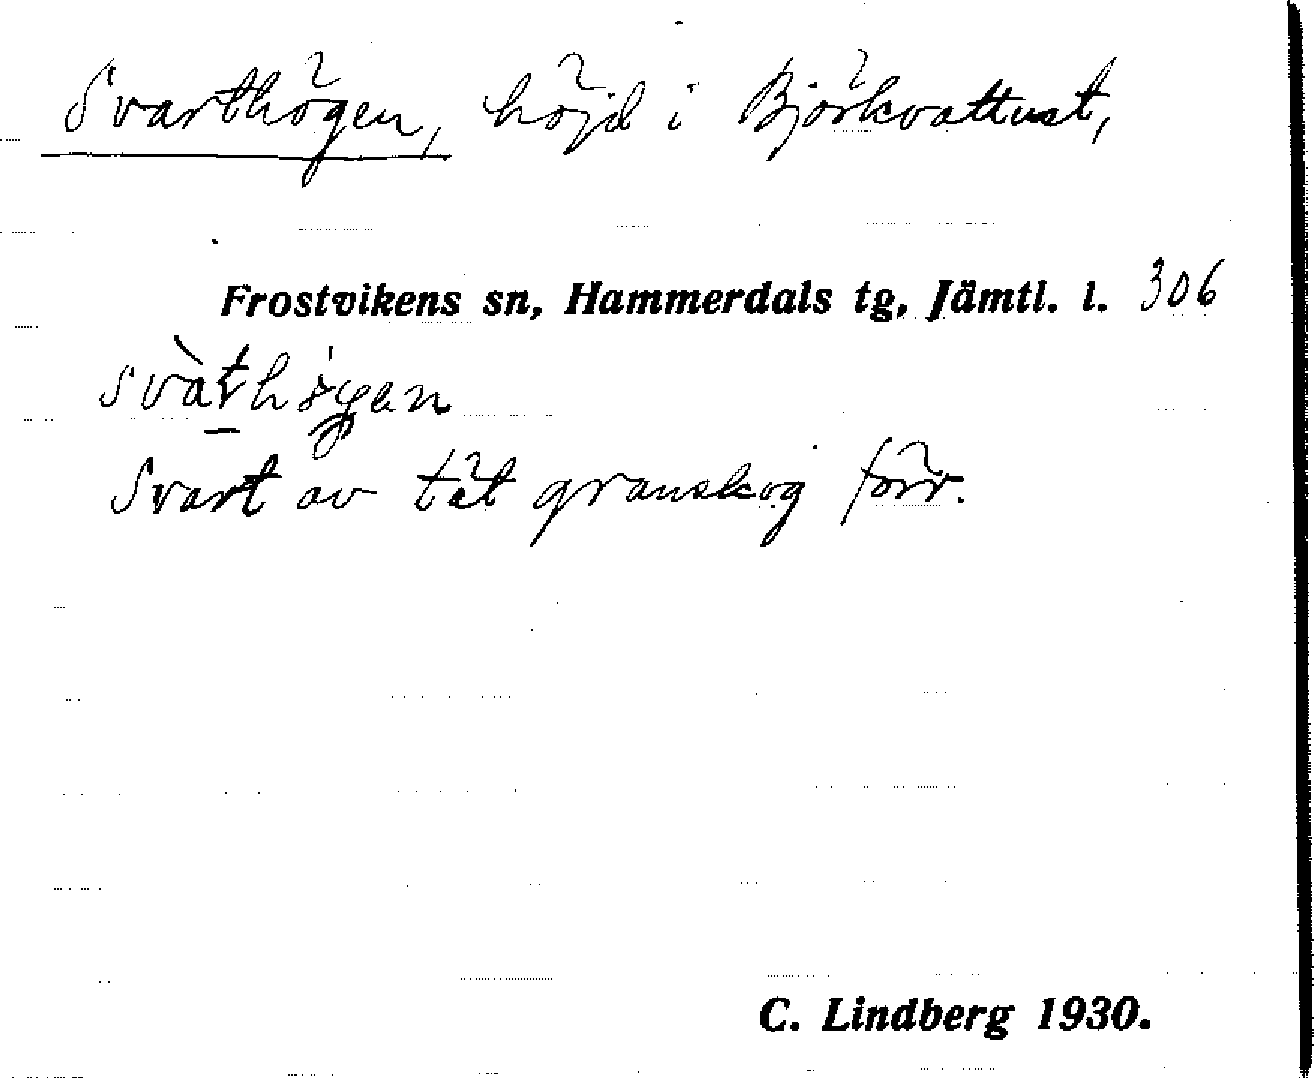 Svarthögen, höjd i Björkvattnet,
Frostvikens sn, Hammerdals tg, Jämtl. l. 306
Svart av tät granskog förr.
C. Lindberg 1930.